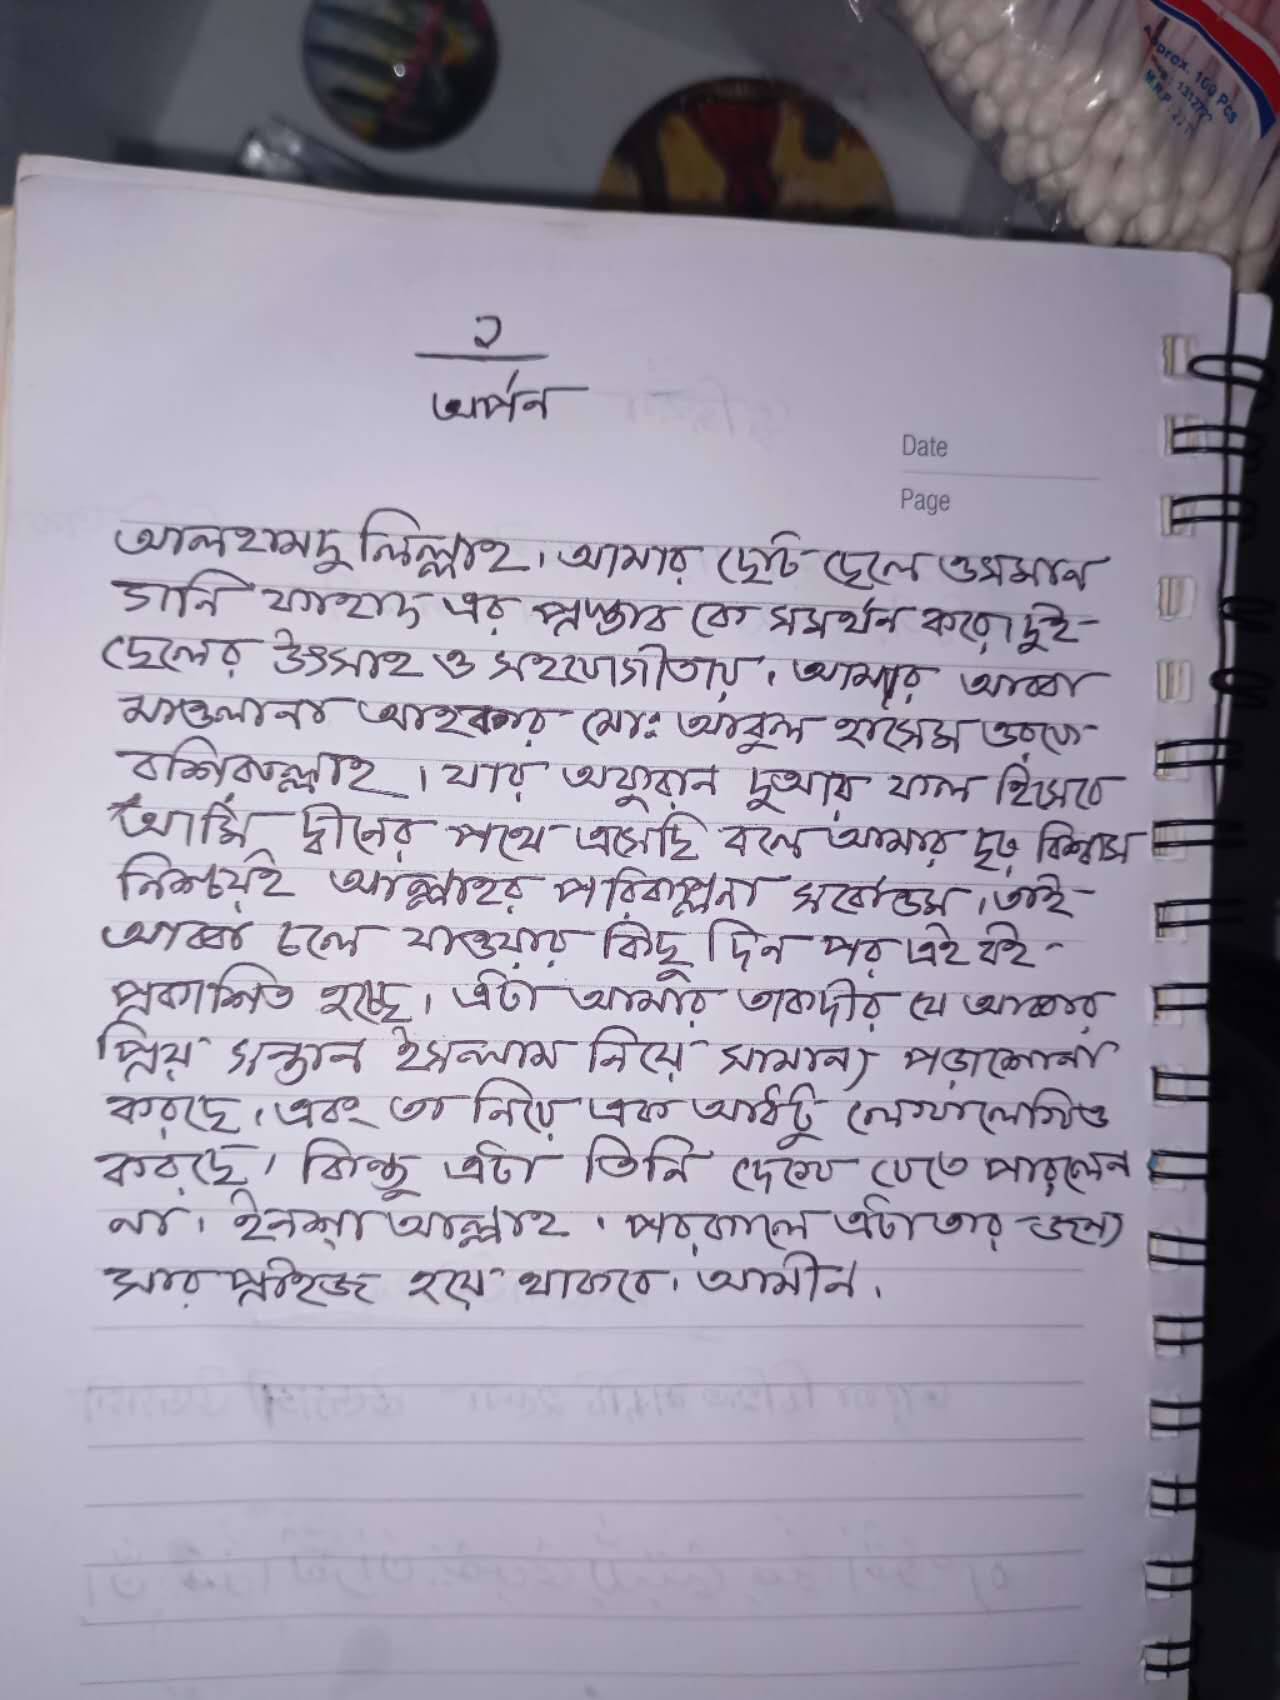 Approx. 100 Pcs
২
অর্পন
Date
Page
আলহামদু লিল্লাহ। আমার ছোট ছেলে ওসমান
গানি ফাহাদ এর প্রস্তাব কে সমর্থন করে। দুই
ছেলের উৎসাহ ও সহযোগীতায়। আমার আব্বা
মাওলানা আহকার মোঃ আবুল হাসেম ওরফে
বশিরুল্লাহ। যার অফুরান দুআর ফল হিসেবে
আমি দ্বীনের পথে এসেছি বলে আমার দৃঢ় বিশ্বাস
নিশ্চয়ই আল্লাহর পরিকল্পনা সর্বোত্তম। তাই
আব্বা চলে যাওয়ার কিছু দিন পর এই বই
প্রকাশিত হচ্ছে। এটা আমার তাকদীর যে আব্বার
প্রিয় সন্তান ইসলাম নিয়ে সামান্য পড়াশোনা
করছে। এবং তা নিয়ে এক আধটু লেখালেখিও
করছে। কিন্তু এটা তিনি দেখে যেতে পারলেন
না। ইনশা আল্লাহ। পরকালে এটা তার জন্য
সার প্রাইজ হয়ে থাকবে। আমীন।